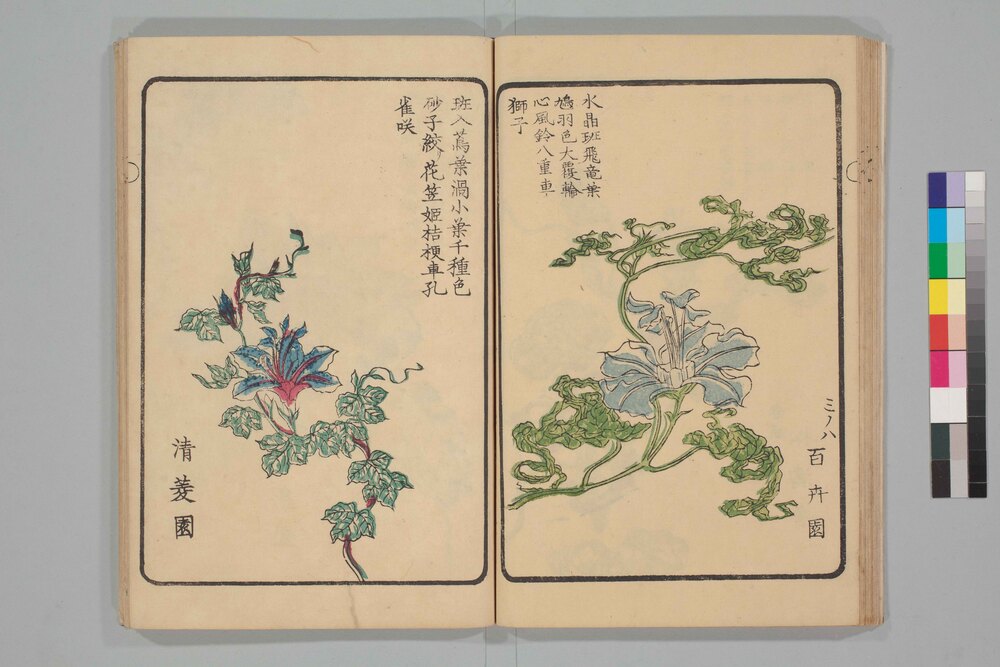 水晶斑飛竜葉
鳩羽色大覆輪
心風鈴八重車
獅子
三ノ八 百卉園
斑入蔦葉渦小葉千種色
砂子絞リ花笠姫桔梗車孔
雀咲
清菱園